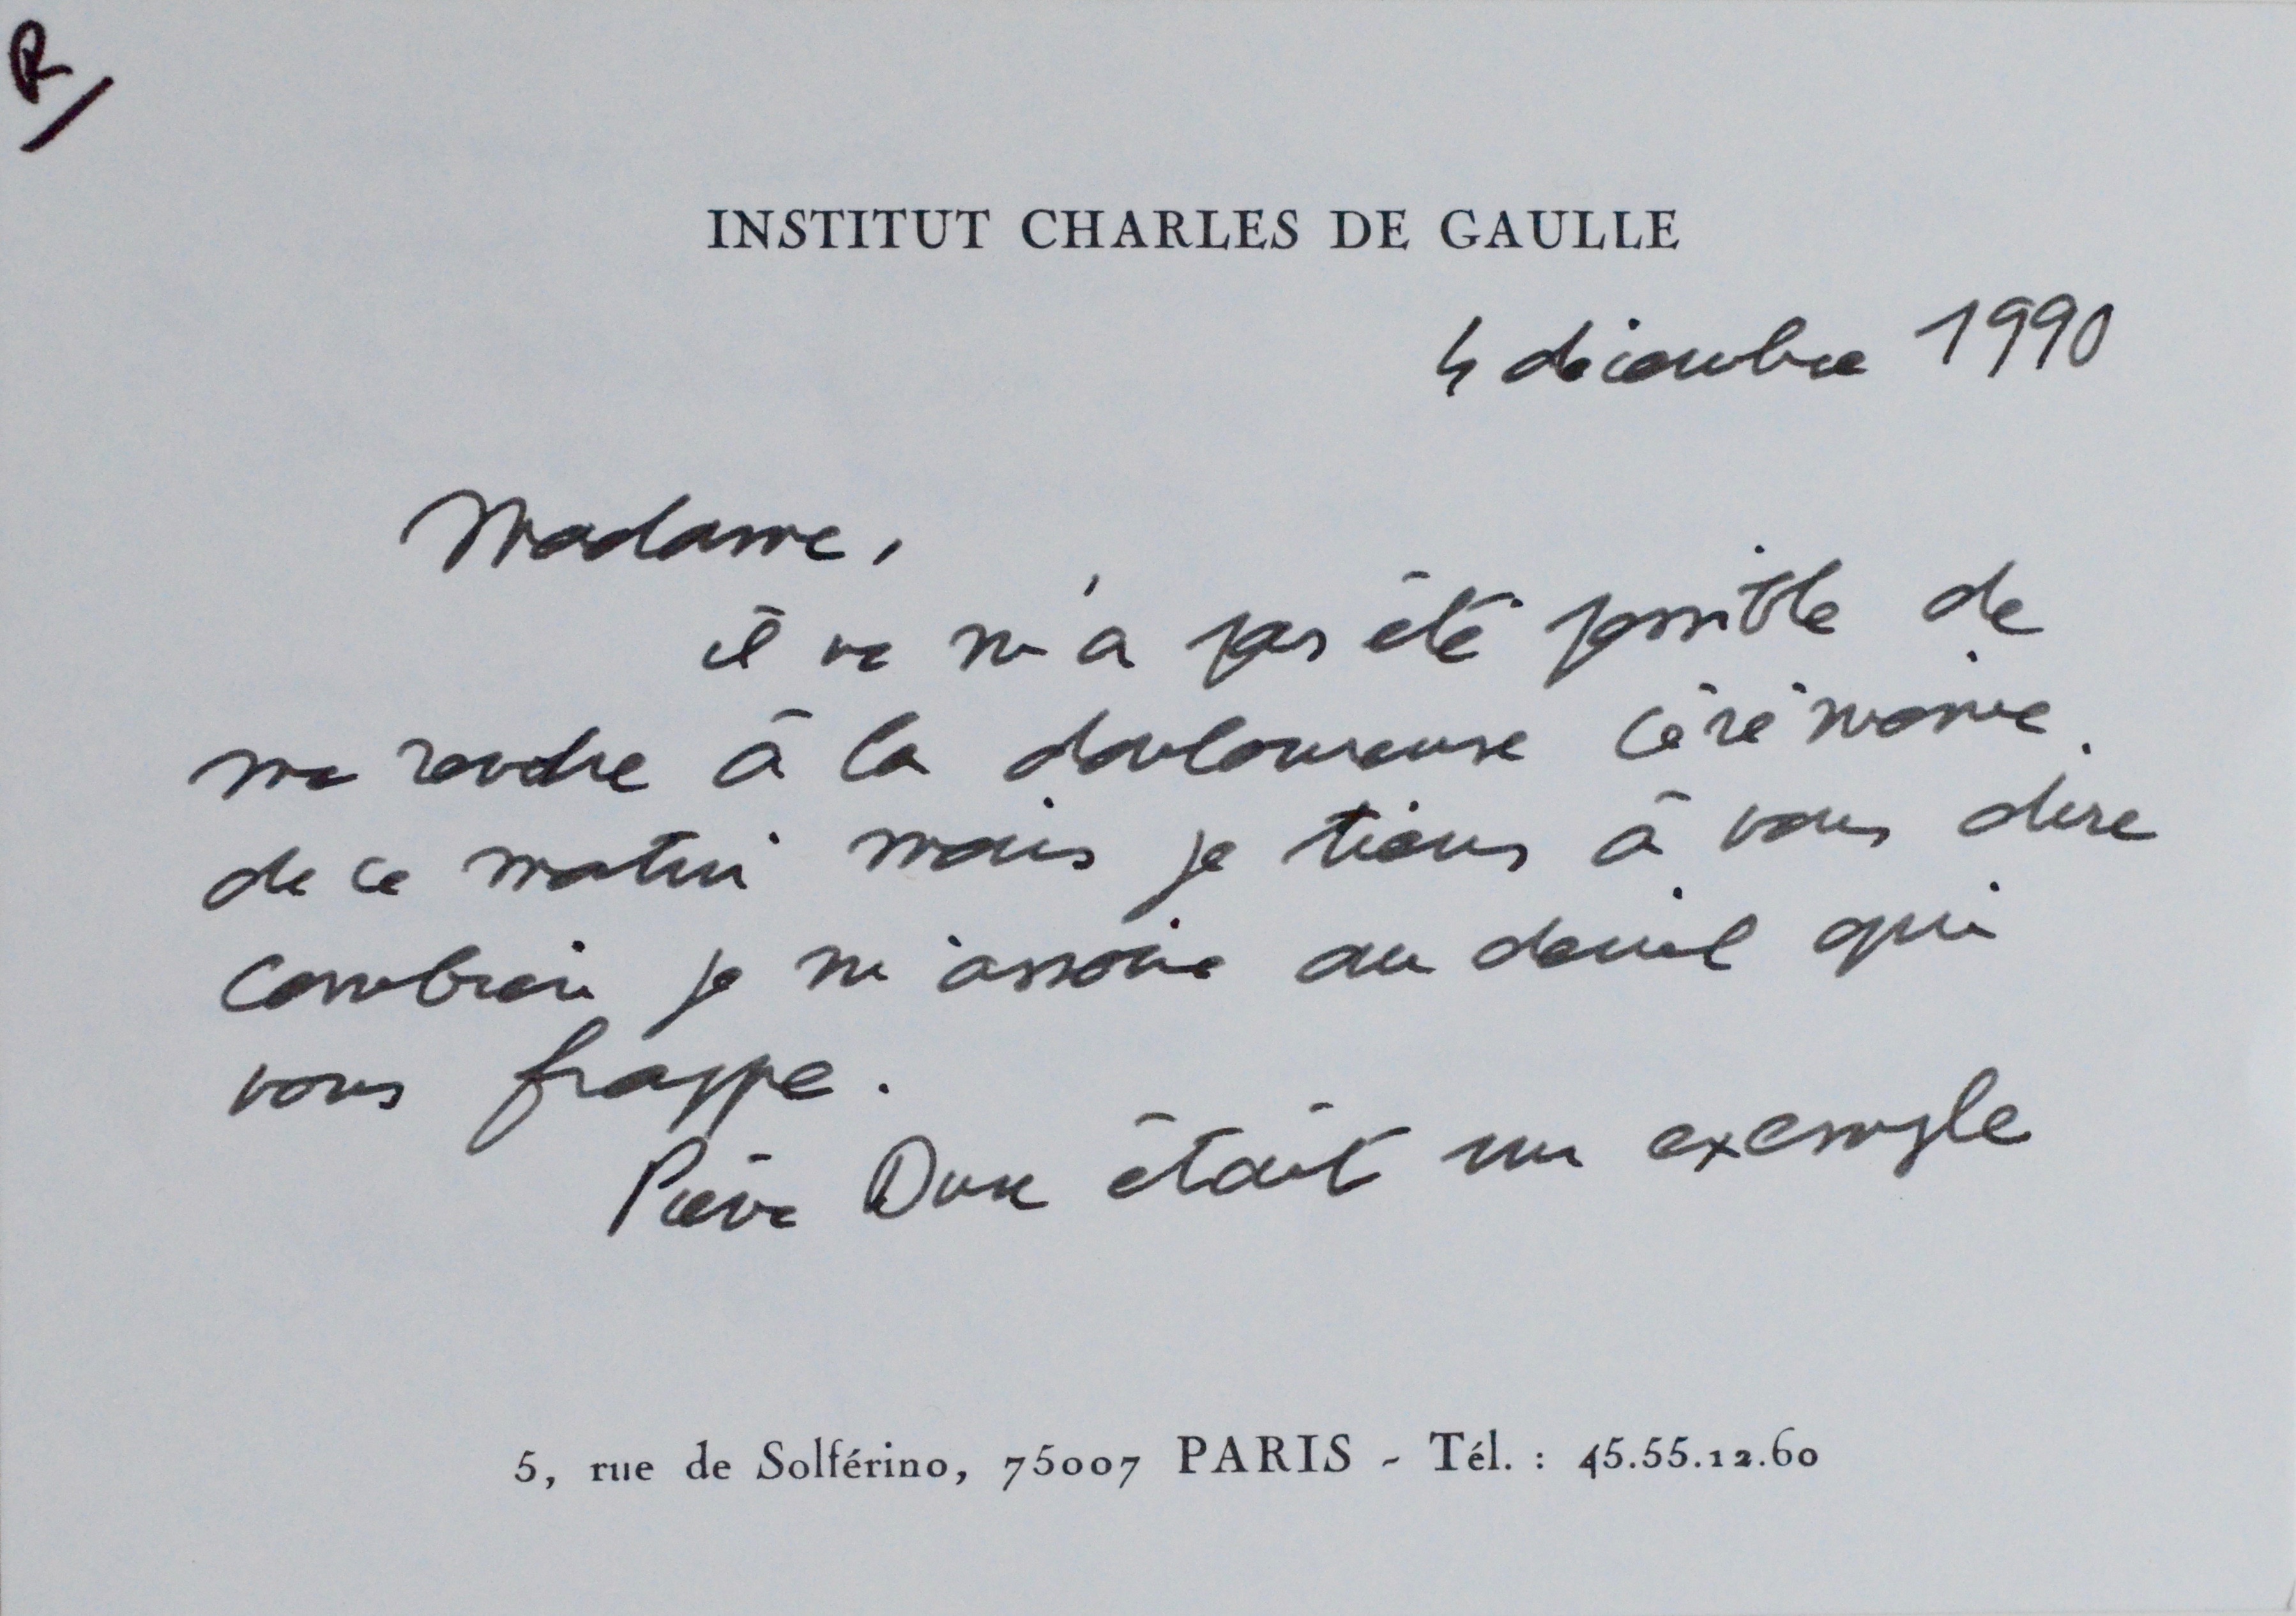 R/
INSTITUT CHARLES DE GAULLE
4 décembre 1990
Madame,
il ne m'a pas été possible de
me rendre à la douloureuse cérémonie
de ce matin mais je tiens à vous dire
combien je m'associe au deuil qui
vous frappe.
Pierre Dux était un exemple
5, rue de Solférino, 75007 PARIS - Tél. : 45.55.12.60